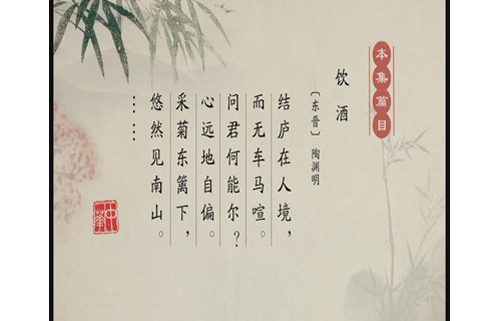 本集篇目
饮酒
〔东晋〕 陶渊明
结庐在人境，
而无车马喧。
问君何能尔？
心远地自偏。
采菊东篱下，
悠然见南山。
……